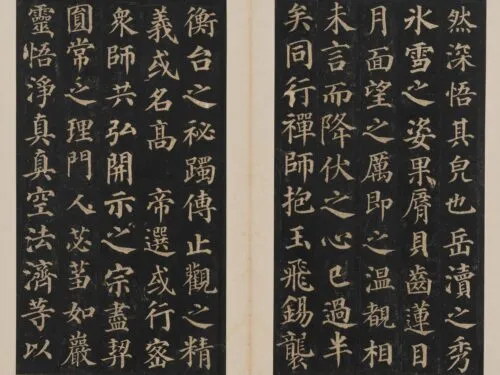 然深悟其皃也岳瀆之秀
氷雪之姿果脣貝齒蓮目
月面望之厲即之温覩相
未言而降伏之心已過半
矣同行禪師抱玉飛錫襲
衡台之祕躅傳止觀之精
義或名高 帝選或行密
衆師共弘開示之宗盡契
圓常之理門人苾蒭如巖
靈悟淨真真空法濟等以